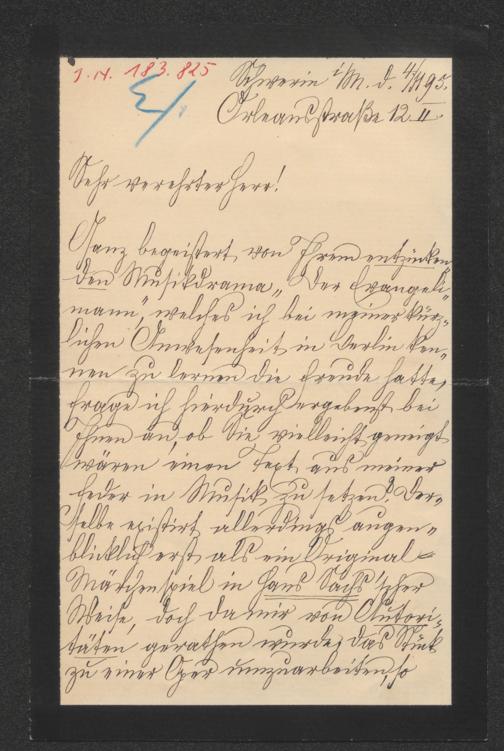 I.N. 183.825
Schwerin i/M. d. 4/XI 95.
Orleansstraße 12 II.
Sehr verehrter Herr!
Ganz begeistert von Ihrem entzücken-
den Musikdrama „Der Evangeli-
mann", welches ich bei meiner kürz-
lichen Anwesenheit in Berlin ken-
nen zu lernen die Freude hatte,
frage ich hierdurch ergebenst bei
Ihnen an, ob Sie vielleicht geneigt
wären einen Text aus meiner
Feder in Musik zu setzen? Der-
selbe existirt allerdings augen-
blicklich erst als ein Original-
Märchenspiel in Hans Sachs'scher
Weise, doch da mir von Autori-
täten gerathen wurde, das Stück
zu einer Oper umzuarbeiten, so